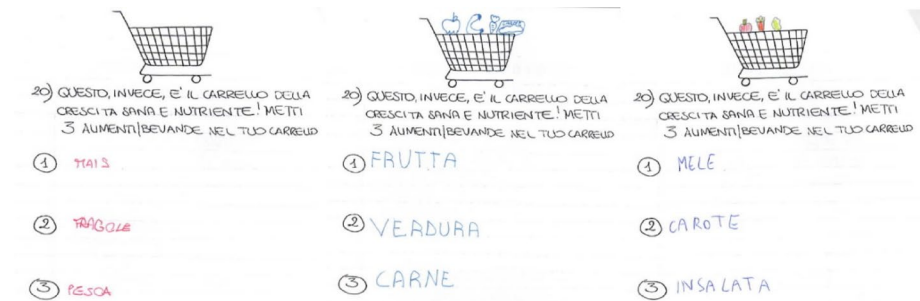 20) QUESTO, INVECE, E' IL CARRELLO DELLA
CRESCITA SANA E NUTRIENTE! METTI
3 ALIMENTI/BEVANDE NEL TUO CARRELLO
1 MAIS
2 FRAGOLE
3 PESCA
20) QUESTO, INVECE, E' IL CARRELLO DELLA
CRESCITA SANA E NUTRIENTE! METTI
3 ALIMENTI/BEVANDE NEL TUO CARRELLO
1 FRUTTA
2 VERDURA
3 CARNE
20) QUESTO, INVECE, E' IL CARRELLO DELLA
CRESCITA SANA E NUTRIENTE! METTI
3 ALIMENTI/BEVANDE NEL TUO CARRELLO
1 MELE
2 CAROTE
3 INSALATA